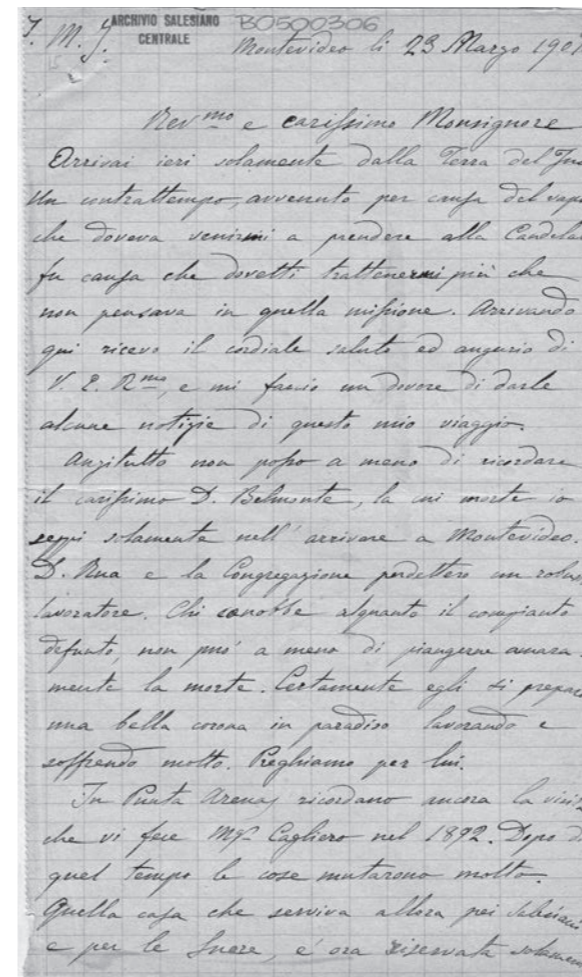 J. M. J.
ARCHIVIO SALESIANO
CENTRALE
B0500306
15
Montevideo li 23 Marzo 190
Rev.mo e carissimo Monsignore
Arrivai ieri solamente dalla Terra del Fuo
Un contrattempo, avvenuto per causa del vapo
che doveva venirmi a prendere alla Candela
fu causa che dovetti trattenermi più che
non pensava in quella missione. Arrivando
qui ricevo il cordiale saluto ed augurio di
V. E. R.ma, e mi faccio un dovere di darle
alcune notizie di questo mio viaggio.
Anzitutto non posso a meno di ricordare
il carissimo D. Belmonte, la cui morte io
seppi solamente nell' arrivare a Montevideo.
D. Rua e la Congregazione perdettero un robus
lavoratore. Chi conobbe alquanto il compianto
defunto, non può a meno di piangerne amara-
mente la morte. Certamente egli si preparò
una bella corona in paradiso lavorando e
soffrendo molto. Preghiamo per lui.
In Punta Arenas ricordano ancora la visita
che vi fece Mgr Cagliero nel 1892. Dopo di
quel tempo le cose mutarono molto.
Quella casa che serviva allora pei Salesiani
e per le Suore, è ora riservata solamen